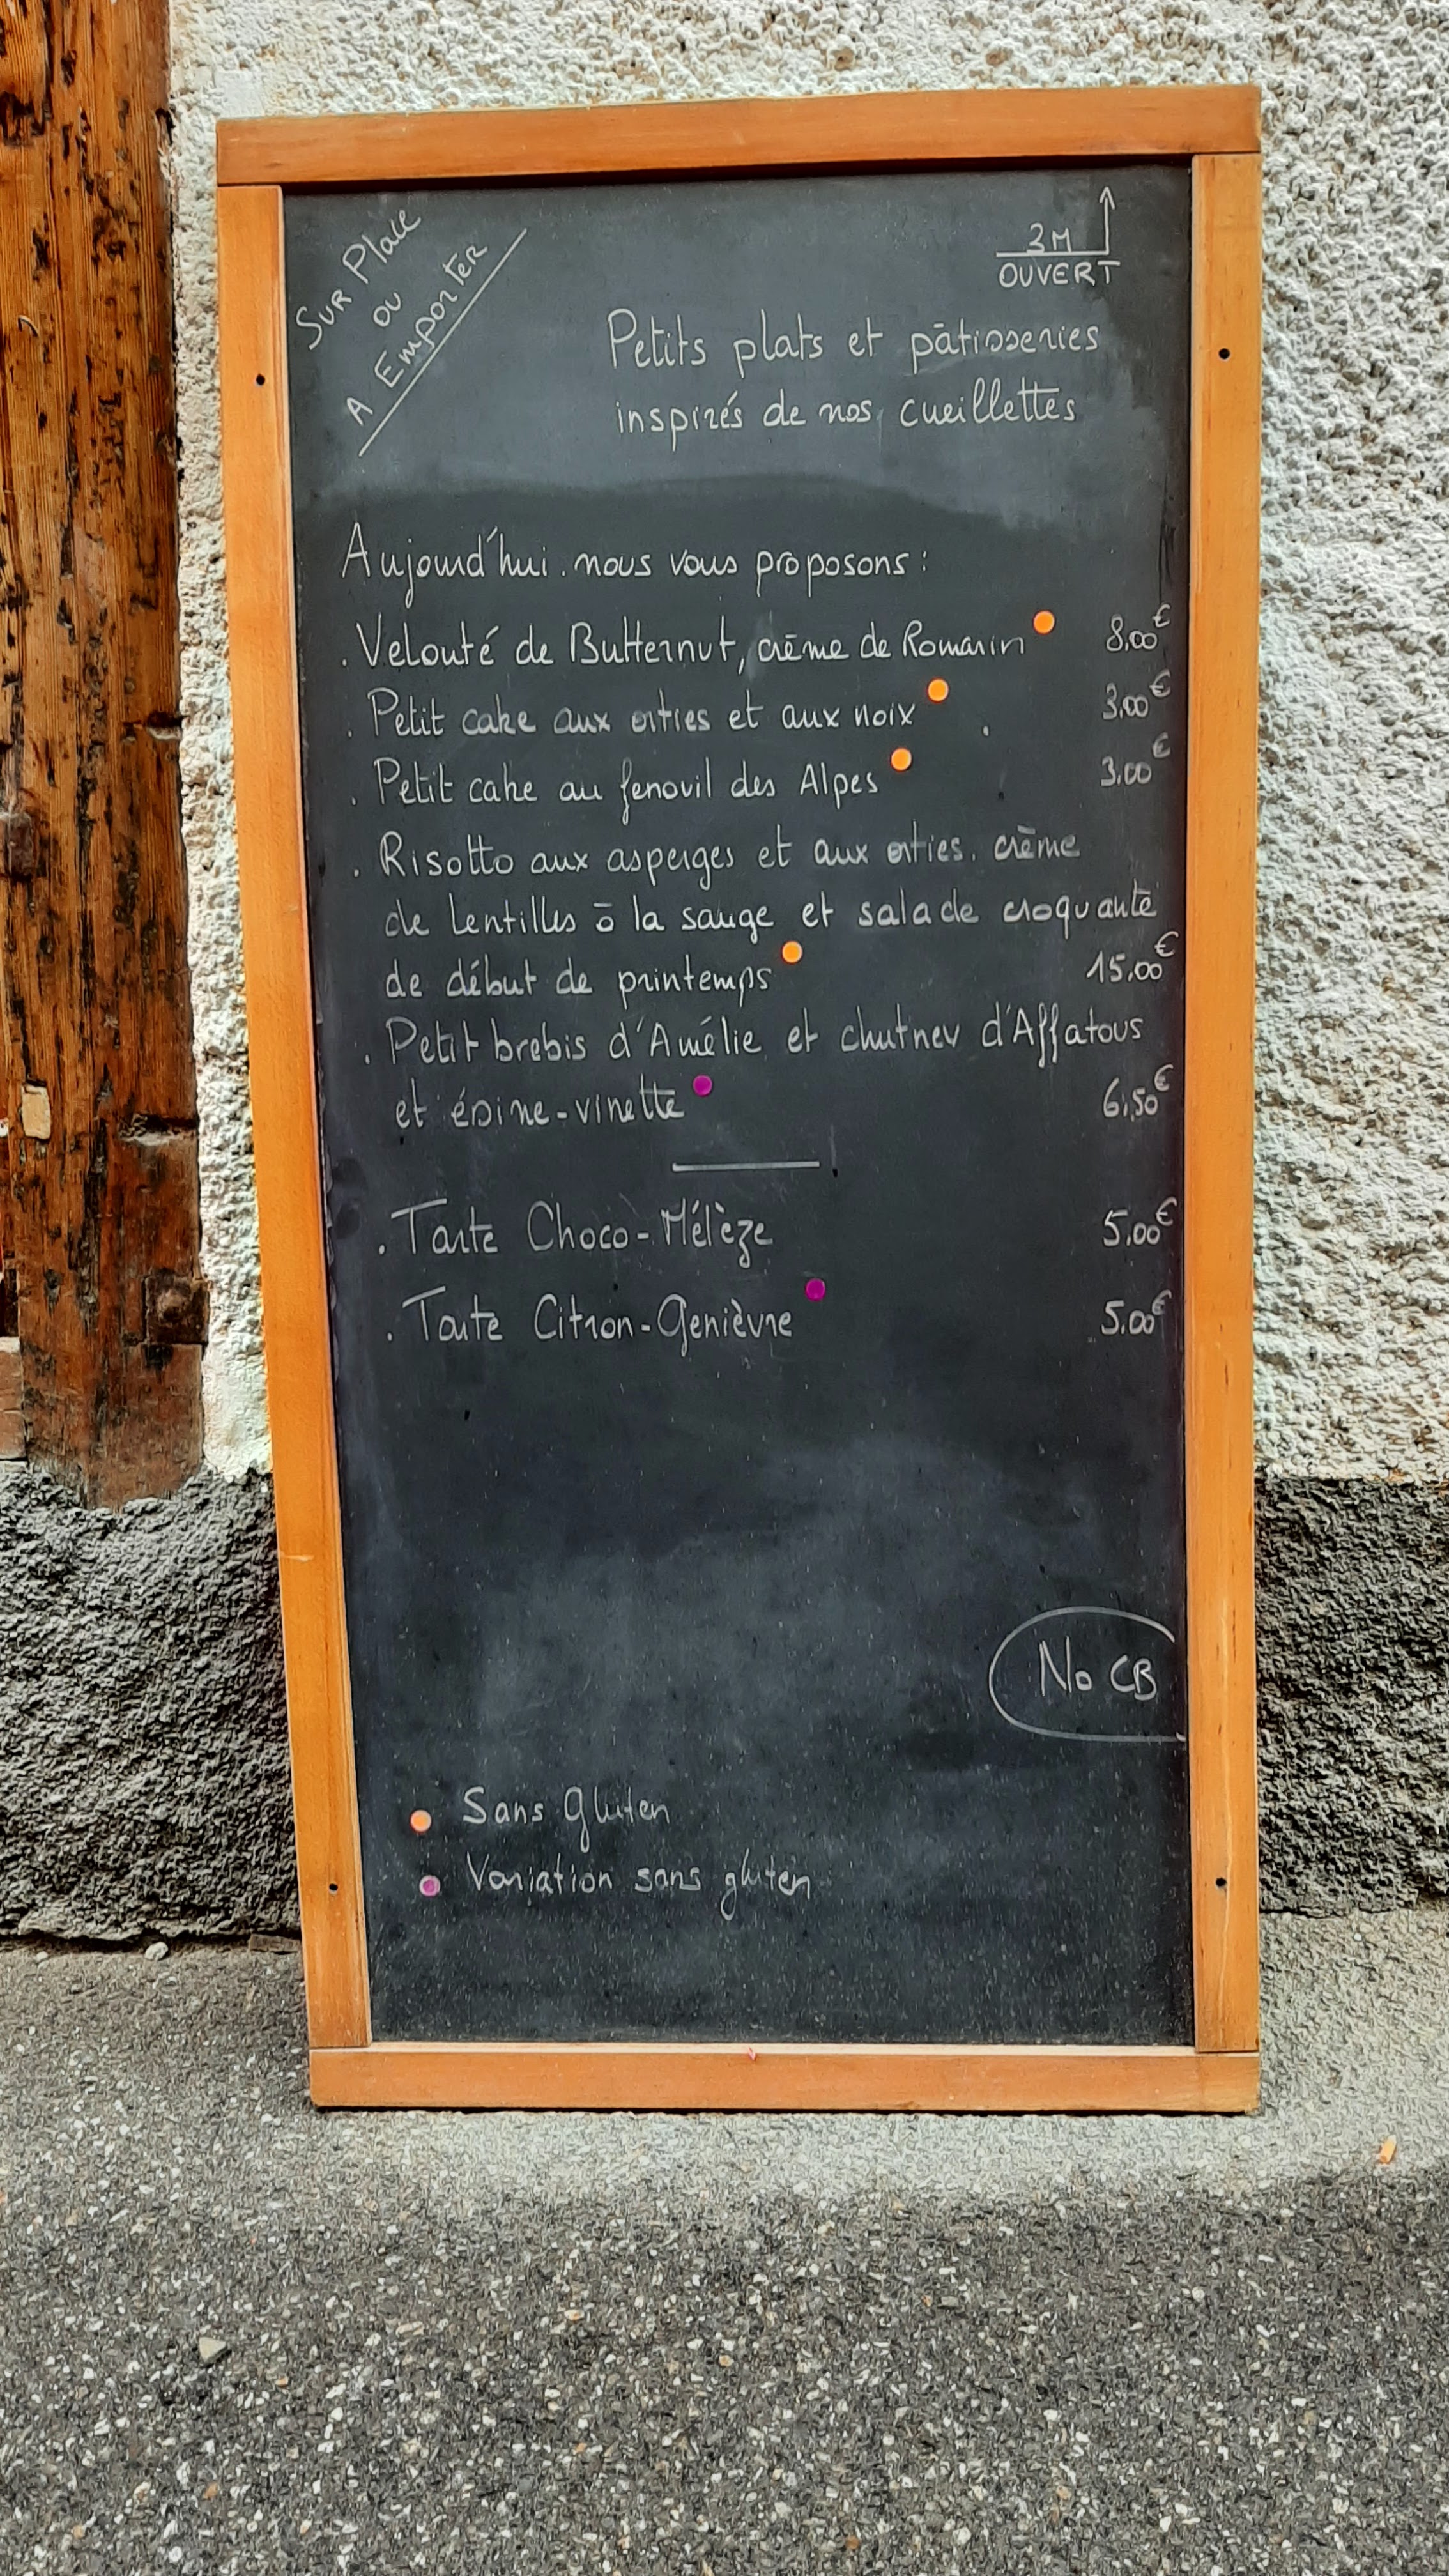 Sur Place
ou
A Emporter
3M
OUVERT
Petits plats et pâtisseries
inspirés de nos cueillettes
Aujourd'hui. nous vous proposons :
. Velouté de Butternut, crème de Romarin 8,00€
. Petit cake aux orties et aux noix 3,00€
. Petit cake au fenouil des Alpes 3,00€
. Risotto aux asperges et aux orties, crème
de lentilles à la sauge et salade croquante
de début de printemps 15,00€
. Petit brebis d'Amélie et chutney d'Affatous
et épine-vinette 6,50€
. Tarte Choco-Mélèze 5,00€
. Tarte Citron-Genièvre 5,00€
No CB
Sans Gluten
Variation sans gluten